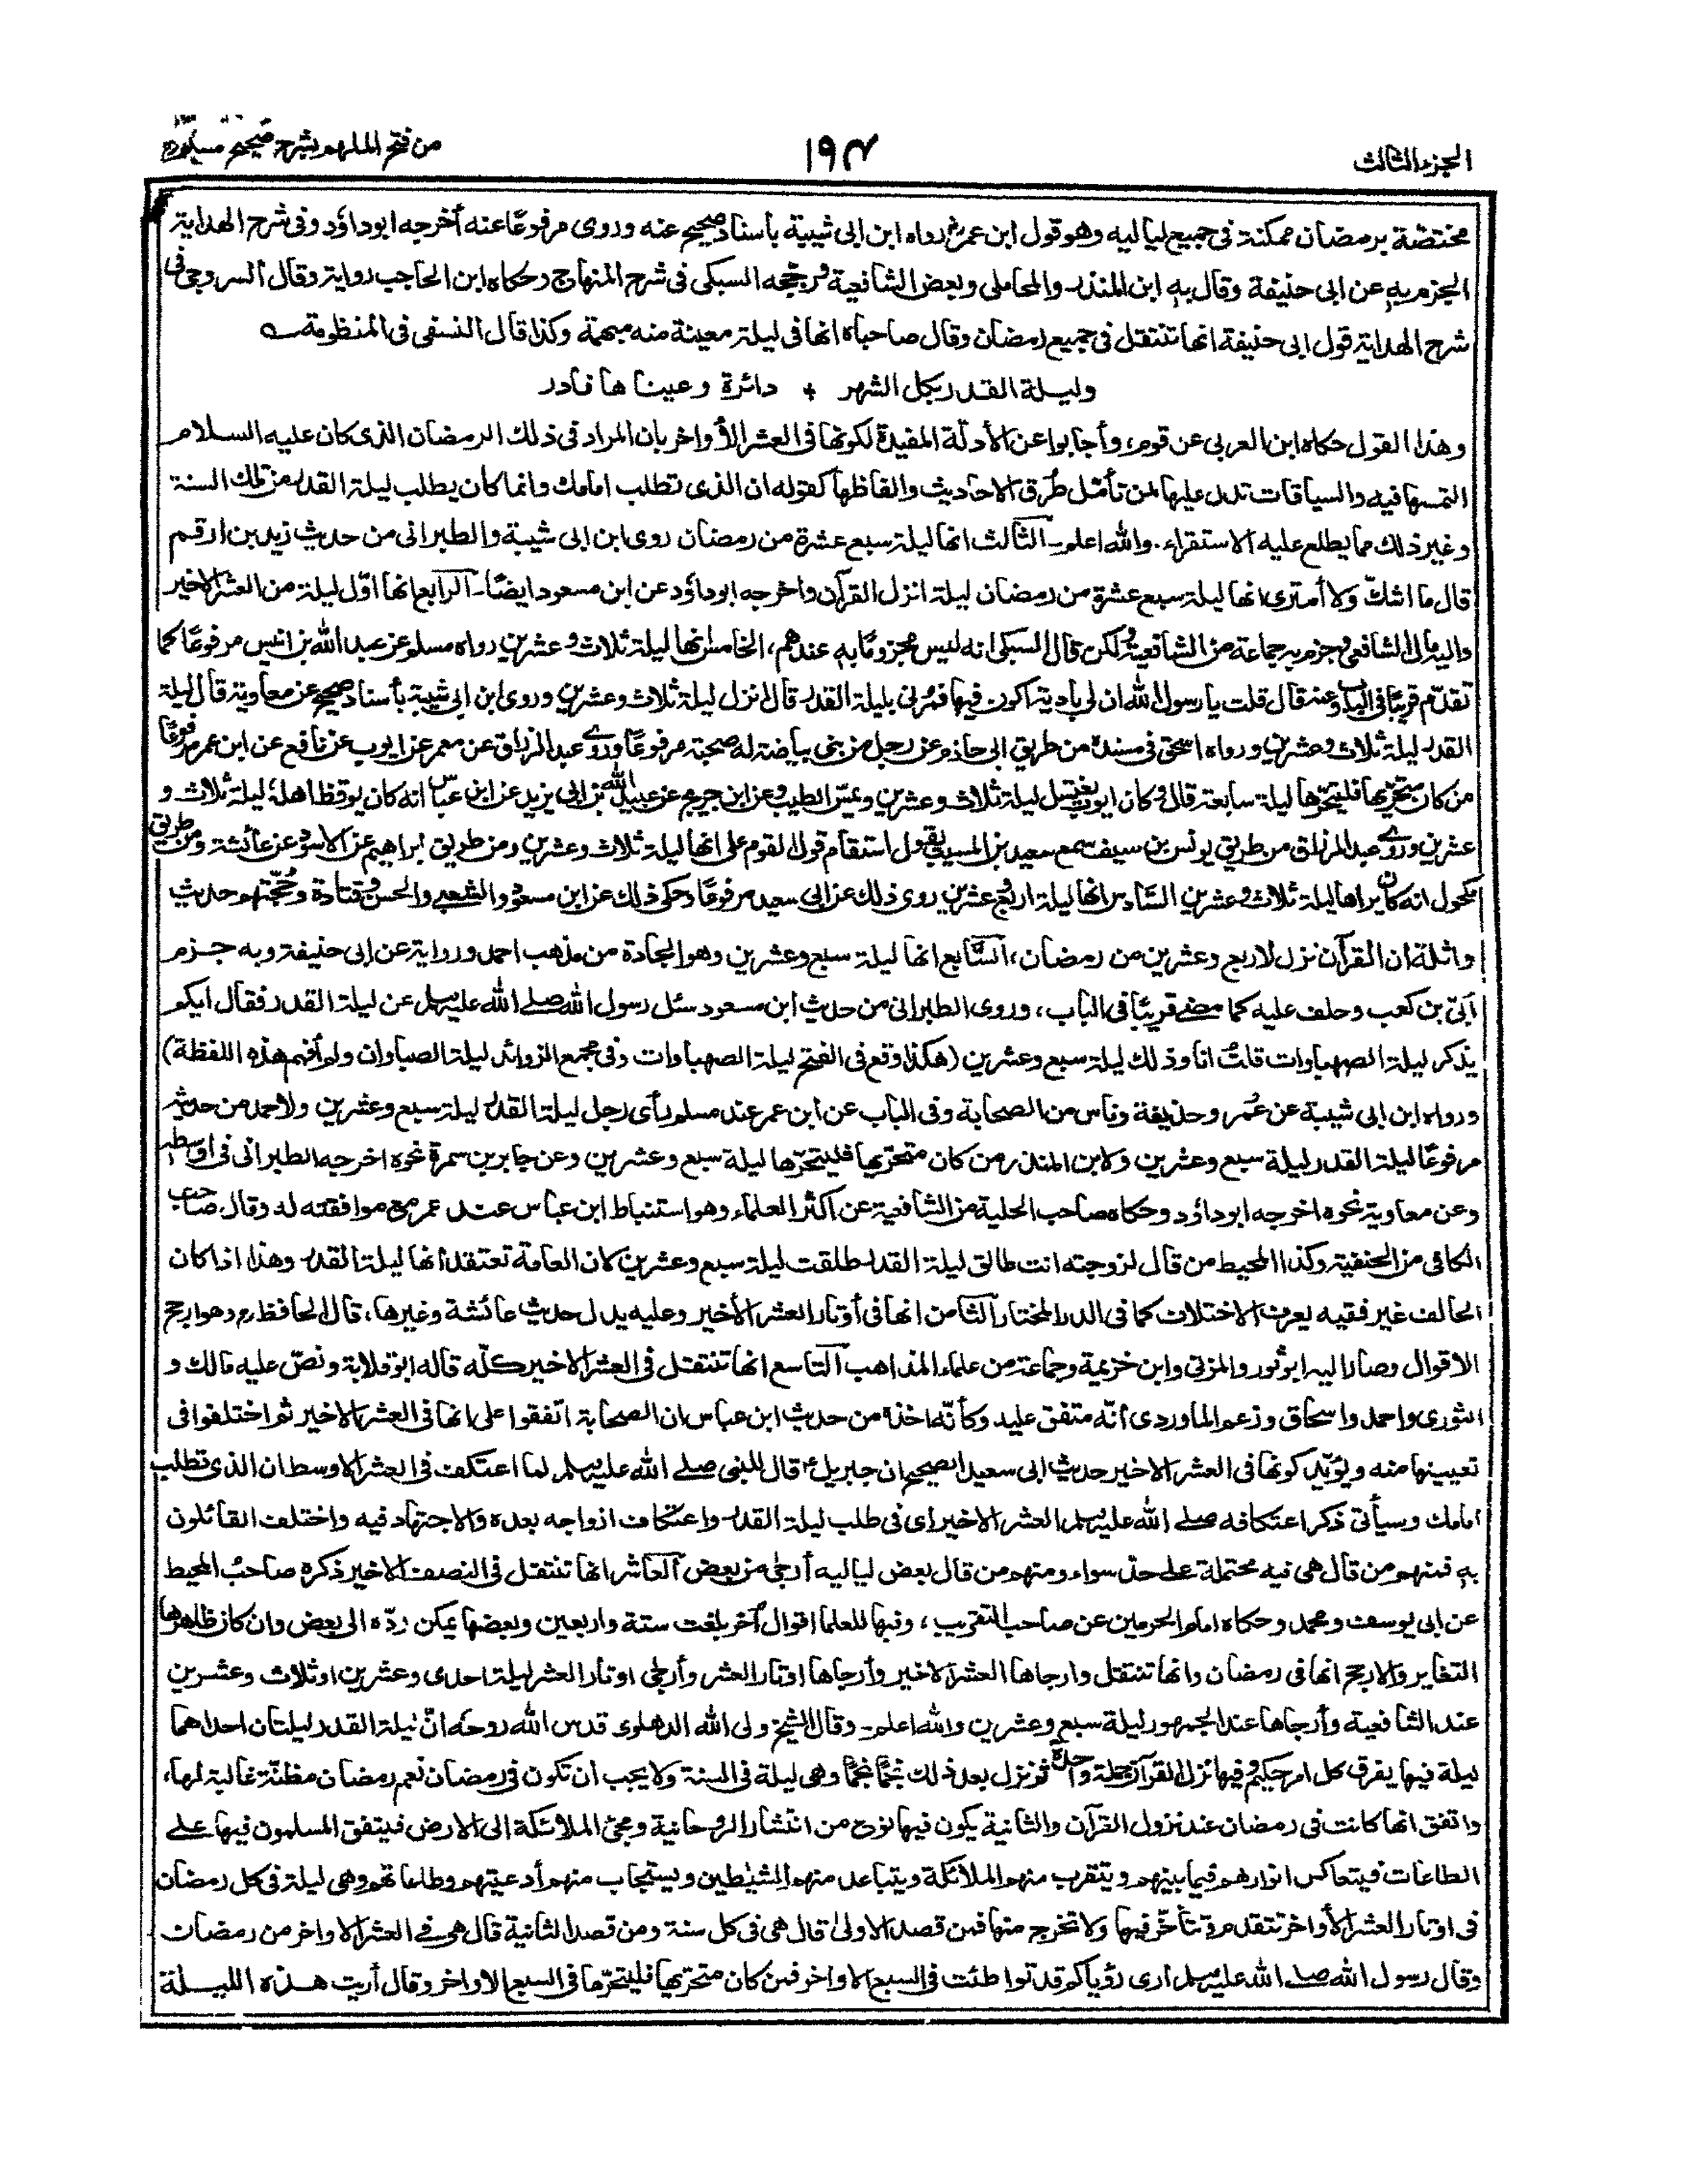 الجزء الثالث
١٩٤
من فتح الملهم بشرح صحيح مسلم
مختصة برمضان ممكنة فى جميع لياليه وهو قول ابن عمر رواه ابن ابى شيبة بأسناد صحيح عنه وروى مرفوعًا عنه أخرجه ابوداؤد وفى شرح الهداية
الجزم به عن ابى حنيفة وقال به ابن المنذر والمحاملى وبعض الشافعية ورجّحه السبكى فى شرح المنهاج وحكاه ابن الحاجب رواية وقال السروجى فى
شرح الهداية قول ابى حنيفة انها تنتقل فى جميع رمضان وقال صاحباه انها فى ليلة معينة منه مبهمة وكذا قال النسفى فى المنظومة
وليلة القدر بكل الشهر + دائرة وعيناها فادر
وهذا القول حكاه ابن العربى عن قوم، وأجابوا عن الأدلّة المفيدة لكونها فى العشر الأواخر بان المراد فى ذلك الرمضان الذى كان عليه السلام
التمسها فيه والسياقات تدل عليها لمن تأمّل طُرق الاحاديث والفاظها كقوله ان الذى تطلب امامك وانما كان يطلب ليلة القدر من تلك السنة
وغير ذلك مما يطلع عليه الاستقراء. والله اعلم۔ الثالث انها ليلة سبع عشرة من رمضان روى ابن ابى شيبة والطبرانى من حديث زيد بن ارقم
قال ما اشكّ ولا أمترى انها ليلة سبع عشرة من رمضان ليلة انزل القرآن واخرجه ابوداؤد عن ابن مسعود ايضًا۔ الرابع انها اوّل ليلة من العشر الاخير
واليه مال الشافعى وجزم به جماعة من الشافعية ولكن قال السبكى انه ليس مجزومًا به عندهم، الخامس انها ليلة ثلاث وعشرين رواه مسلم عن عبد الله بن انيس مرفوعًا كما
تقدّم قريبًا فى الباب وعنه قال قلت يا رسول الله ان لى بادية اكون فيها فمرنى بليلة القدر قال انزل ليلة ثلاث وعشرين وروى ابن ابى شيبة بأسناد صحيح عن معاوية قال ليلة
القدر ليلة ثلاث وعشرين ورواه اسحق فى مسنده من طريق ابى حازم عن رجل من بنى بياضة له صحبة مرفوعًا وروى عبد الرزاق عن معمر عن ايوب عن نافع عن ابن عمر مرفوعًا
من كان متحريها فليتحرّها ليلة سابعة قال وكان ايوب يغتسل ليلة ثلاث وعشرين ويمسّ الطيب وعن ابن جريج عن عبيد الله بن ابى يزيد عن ابن عباس انه كان يوقظ اهله ليلة ثلاث و
عشرين وروى عبد الرزاق من طريق يونس بن سيف سمع سعيد بن المسيب يقول استقام قول القوم على انها ليلة ثلاث وعشرين ومن طريق ابراهيم عن الاسود عن عائشة ومن طريق
مكحول انه كان يراها ليلة ثلاث وعشرين السادس انها ليلة اربع وعشرين روى ذلك عن ابى سعيد مرفوعًا وحكى ذلك عن ابن مسعود والشعبى والحسن وقتادة وحُجّتهم حديث
واثلة ان القرآن نزل لاربع وعشرين من رمضان، السّابع انها ليلة سبع وعشرين وهو الجادة من مذهب احمد ورواية عن ابى حنيفة وبه جزم
أبىّ بن كعب وحلف عليه كما مضى قريبًا فى الباب، وروى الطبرانى من حديث ابن مسعود سئل رسول الله صلى الله عليه وسلم عن ليلة القدر فقال ايكم
يذكر ليلة الصهباوات قلتُ انا وذلك ليلة سبع وعشرين (هكذا وقع فى الفتح ليلة الصهباوات وفى مجمع الزوائد ليلة الصباوان ولم أفهم هذه اللفظة)
ورواه ابن ابى شيبة عن عُمر وحذيفة وناس من الصحابة وفى الباب عن ابن عمر عند مسلم رأى رجل ليلة القدر ليلة سبع وعشرين ولاحمد من حديثه
مرفوعًا ليلة القدر ليلة سبع وعشرين ولابن المنذر من كان متحرّيها فليتحرّها ليلة سبع وعشرين وعن جابر بن سمرة نحوه اخرجه الطبرانى فى اوسطه
وعن معاوية نحوه اخرجه ابوداؤد وحكاه صاحب الحلية من الشافعية عن اكثر العلماء وهو استنباط ابن عباس عند عمر مع موافقته له وقال صاحب
الكافى من الحنفية وكذا المحيط من قال لزوجته انت طالق ليلة القدر طلقت ليلة سبع وعشرين لان العامة تعتقد أنها ليلة القدر وهذا اذا كان
الحالف غير فقيه يعرف الاختلاف كما فى الدر المختار الثامن انها فى أوتار العشر الأخير وعليه يدل حديث عائشة وغيرها، قال الحافظ رح وهو ارجح
الاقوال وصار اليه ابو ثور والمزنى وابن خزيمة وجماعة من علماء المذاهب التاسع انها تنتقل فى العشر الاخير كلّه قاله ابو قلابة ونصّ عليه مالك و
الثورى واحمد واسحاق وزعم الماوردى أنّه متفق عليه وكأنّه اخذه من حديث ابن عباس ان الصحابة اتفقوا على انها فى العشر الاخير ثم اختلفوا فى
تعيينها منه ويؤيّد كونها فى العشر الاخير حديث ابى سعيد الصحيح ان جبريل قال للنبى صلى الله عليه وسلم لما اعتكف فى العشر الاوسط ان الذى تطلب
امامك وسيأتى ذكر اعتكافه صلى الله عليه وسلم العشر الاخير اى فى طلب ليلة القدر واعتكاف ازواجه بعده والاجتهاد فيه واختلف القائلون
به فمنهم من قال هى فيه محتملة على حدّ سواء ومنهم من قال بعض لياليه أرجى من بعض العاشر انها تنتقل فى النصف الاخير ذكره صاحب المحيط
عن ابى يوسف ومحمد وحكاه امام الحرمين عن صاحب التقريب، وفيها للعلما اقوال أخر بلغت ستة واربعين وبعضها يمكن ردّه الى بعض وان كان ظاهرها
التغاير والارجح انها فى رمضان وانها تنتقل وارجاها العشر الاخير وأرجاها اوتار العشر وأرجى اوتار العشر ليلة احدى وعشرين او ثلاث وعشرين
عند الشافعية وأرجاها عند الجمهور ليلة سبع وعشرين والله اعلم۔ وقال الشيخ ولى الله الدهلوى قدس الله روحه انّ ليلة القدر ليلتان احداهما
ليلة فيها يفرق كل امر حكيم وفيها نزل القرآن جملة واحدة ثم نزل بعد ذلك نجمًا نجمًا وهى ليلة فى السنة ولا يجب ان تكون فى رمضان نعم رمضان مظنّة غالبة لها،
واتفق انها كانت فى رمضان عند نزول القرآن والثانية يكون فيها نوع من انتشار الروحانية ومجئ الملائكة الى الارض فيتفق المسلمون فيها على
الطاعات فيتعاكس انوارهم فيما بينهم ويتقرب منهم الملائكة ويتباعد منهم الشيٰطين ويستجاب منهم أدعيتهم وطاعاتهم وهى ليلة فى كل رمضان
فى اوتار العشر الأواخر تتقدم وتتأخّر فيها ولا تخرج منها فمن قصد الاولىٰ قال هى فى كل سنة ومن قصد الثانية قال هى فى العشر الاواخر من رمضان
وقال رسول الله صلى الله عليه وسلم ارى رؤياكم قد تواطئت فى السبع الاواخر فمن كان متحرّيها فليتحرّها فى السبع الاواخر وقال أريت هذه الليلة